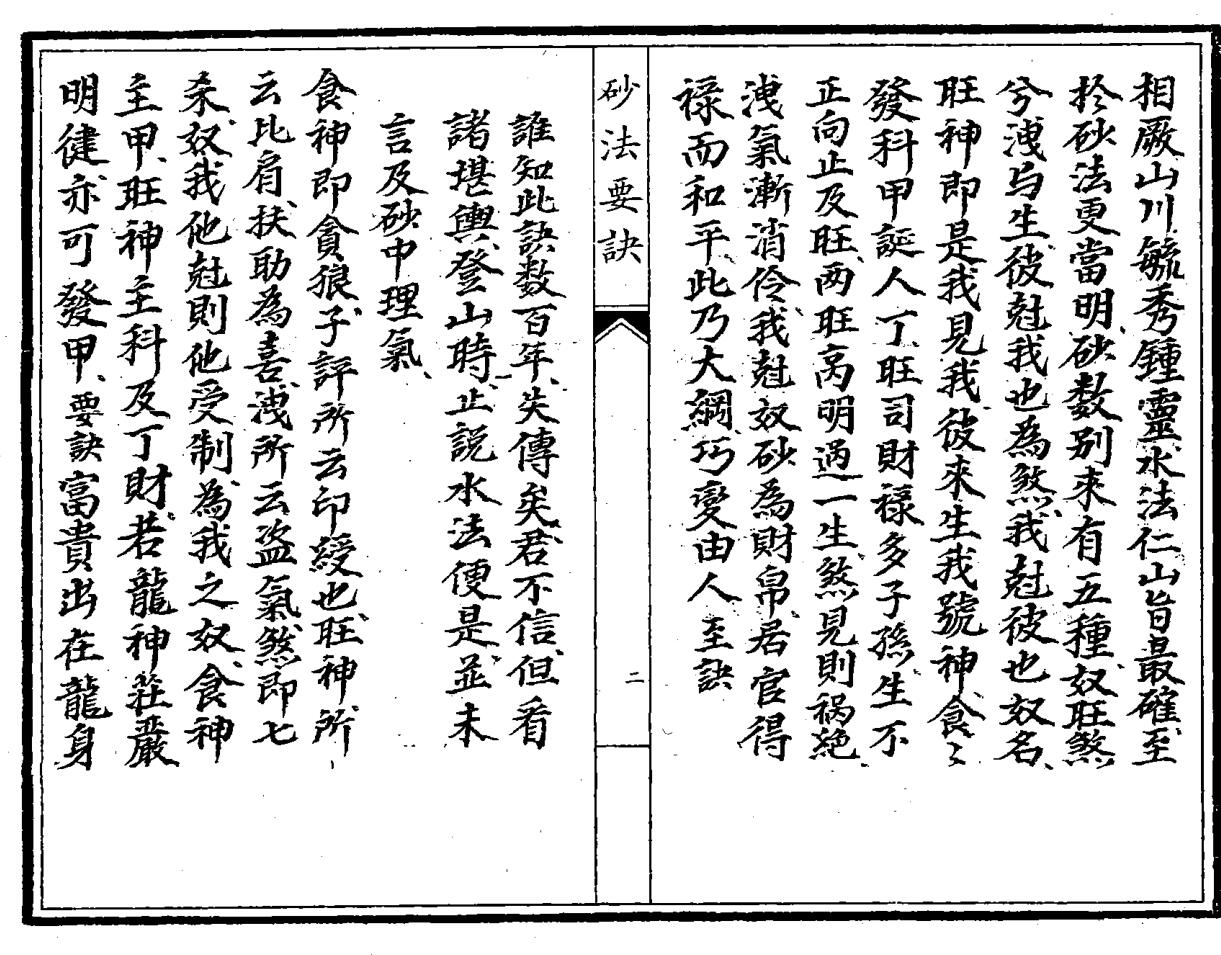 相厥山川毓秀鍾靈水法仁山旨最確至
於砂法更當明砂数別來有五種奴旺煞
兮洩与生彼尅我也為煞我尅彼也奴名
旺神即是我見我彼來生我號神食〻
發科甲誕人丁旺司財祿多子孫生不
正向止及旺两旺高明遇一生煞見則祸絶
洩氣漸消伶我尅奴砂為財帛居官得
祿而和平此乃大綱巧變由人 至訣
砂法要訣
二
誰知此訣数百年失傳矣君不信但看
諸堪輿登山時止説水法便是並未
言及砂中理氣
食神即貪狼子評所云印綬也旺神所
云比肩扶助為喜洩所云盗氣煞即七
杀奴我他尅則他受制為我之奴食神
主甲旺神主科及丁財若龍神莊嚴
明健亦可發甲要訣富貴出在龍身